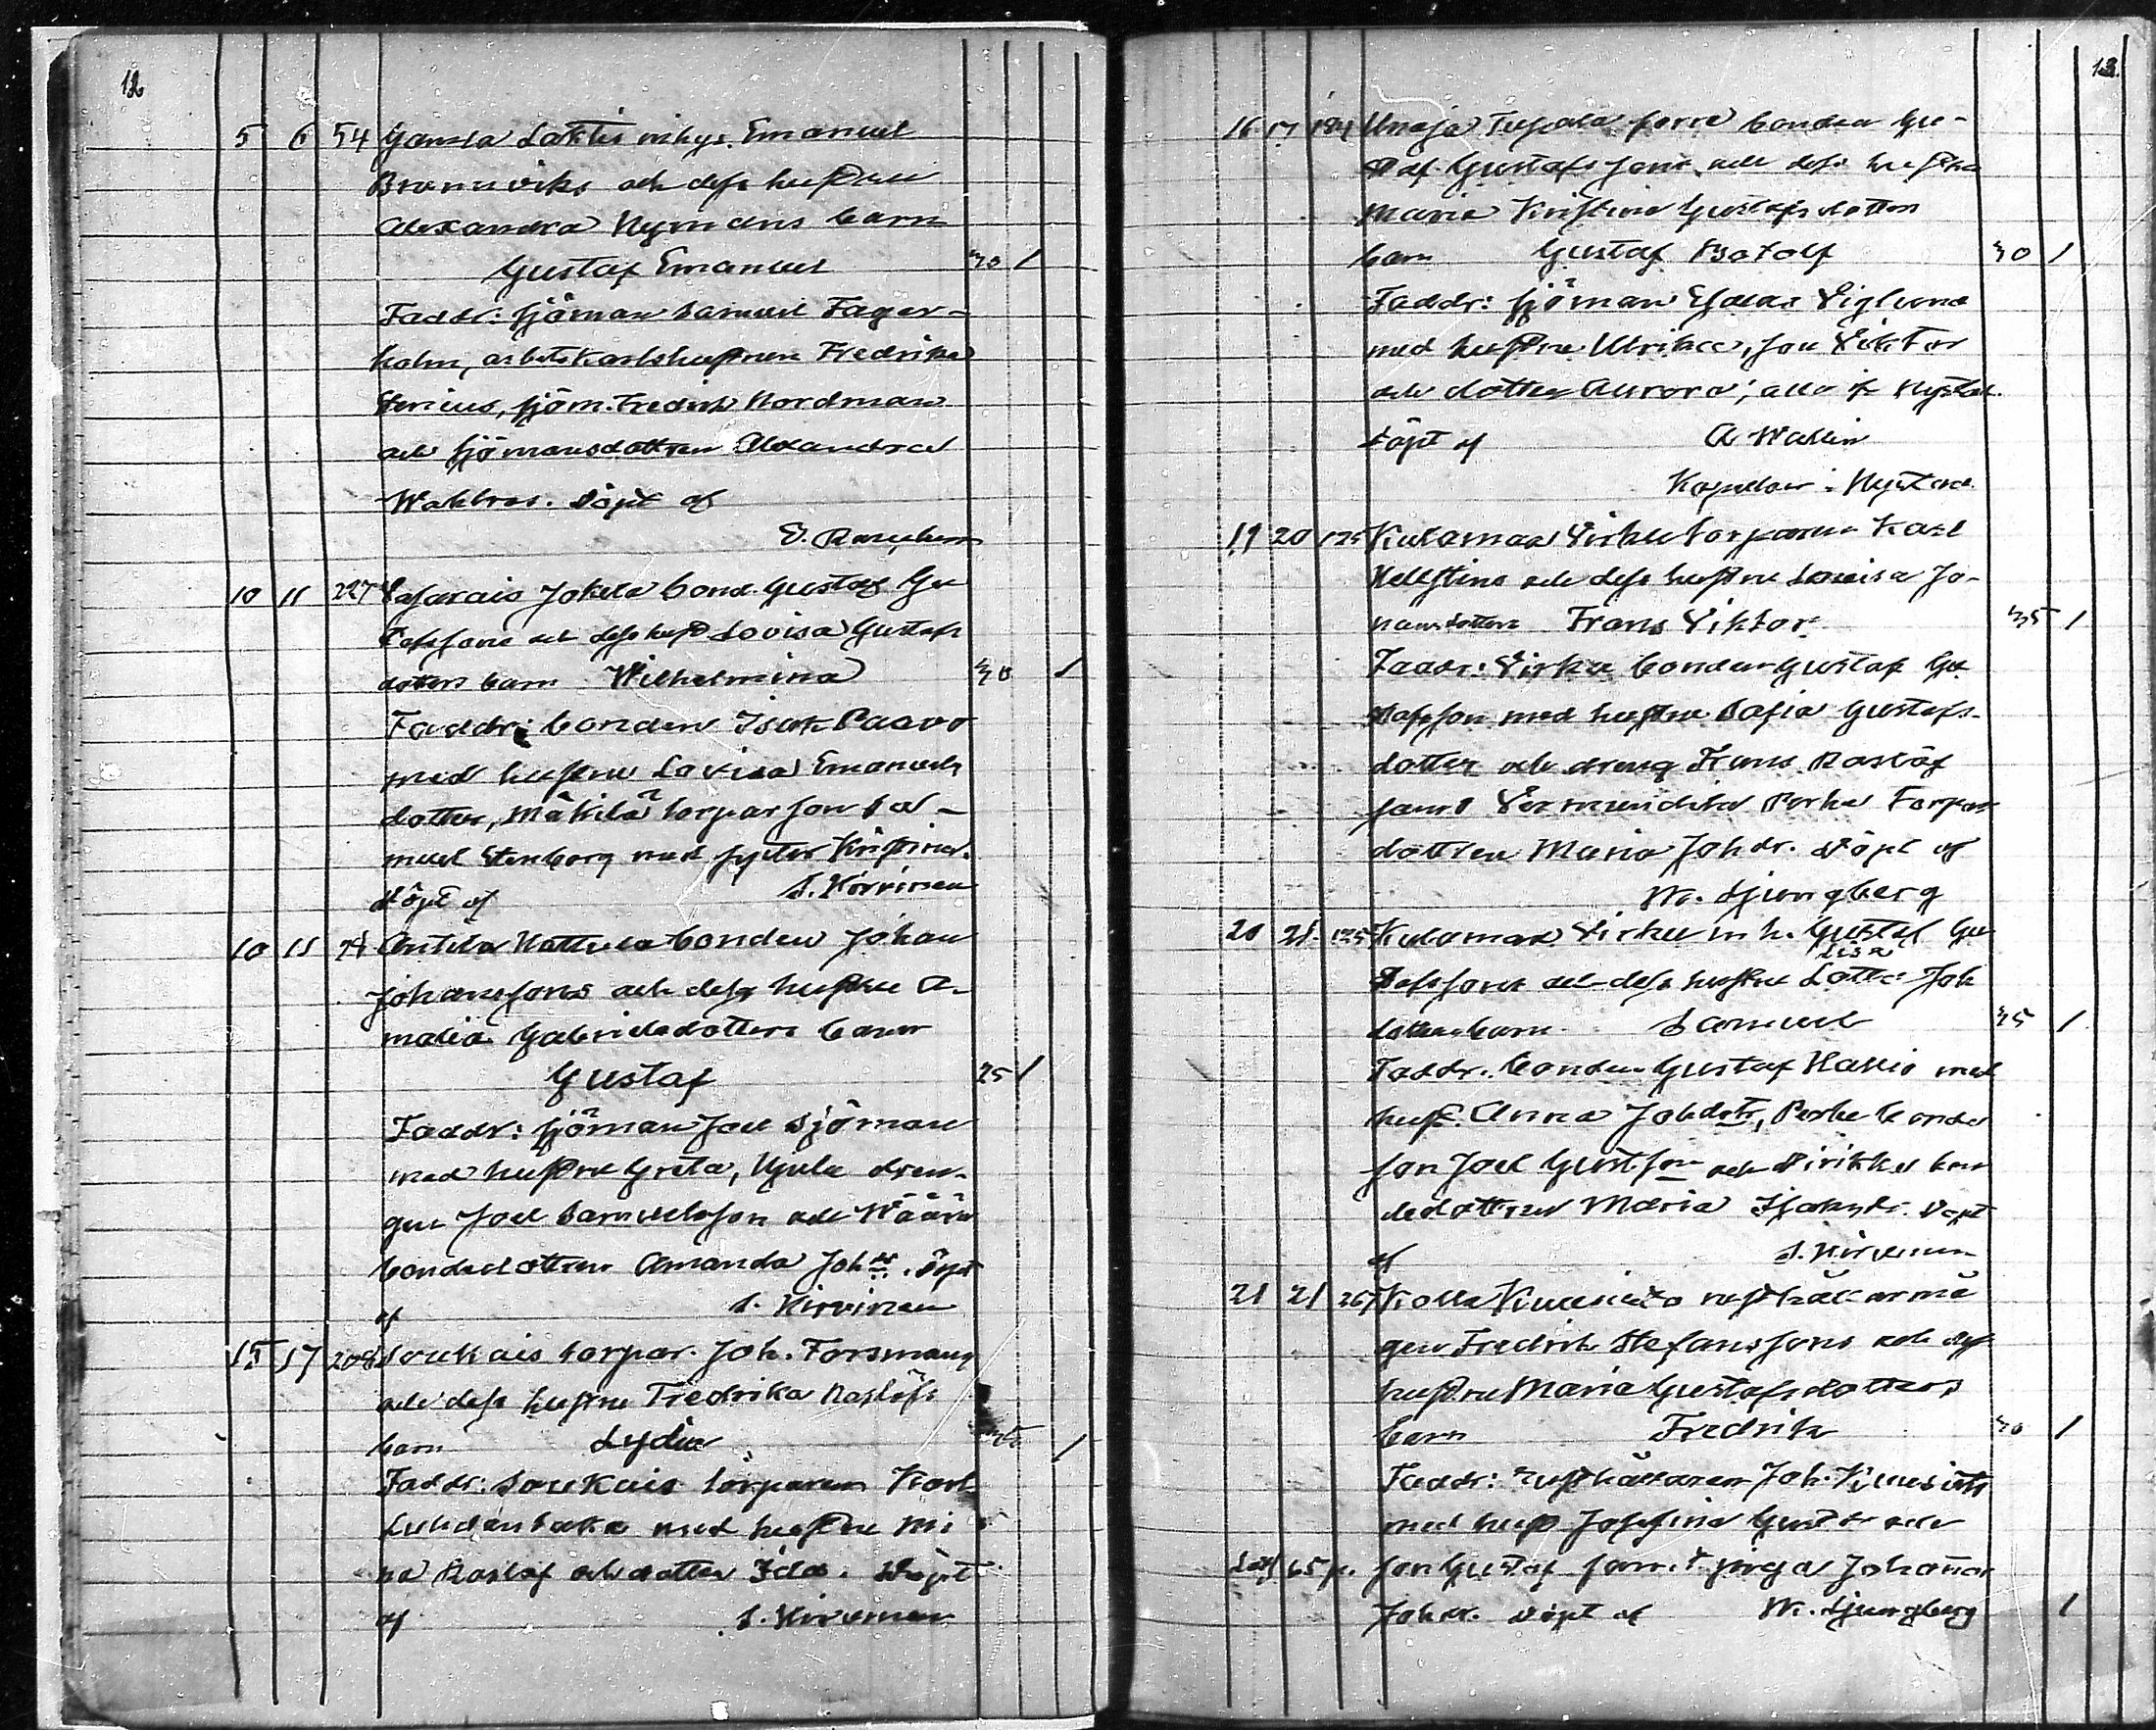 12
5 6 54 Gamla Laktis inhys. Emanuel
Brunnviks och dess hustru
Alexandra Nymans barn
Gustaf Emanuel 30 1
Faddr: sjöman Samuel Fager-
holm, arbetskarlshustrun Fredrika
sjöm. Fredrik Nordman
och sjömansdottren Alexandra
Wahlros. Döpt af
E.
10 11 227 Jokela bond. Gustaf Gu
stafssons och dess hust Lovisa Gustafs
dotters barn Wilhelmina 30 1
Faddr: bonden Isak Paavo
med hustru Lovisa Emanuels
dotter, Mäkilä torparson Sa-
muel Stenborg med syster Kristina.
Döpt af S. Kirvinen
10 11 Anttila Nattula bonden Johan
Johanssons och dess hustru A-
malia Gabrielsdotters barn
Gustaf 25 1
Faddr: sjöman Joel Sjöman
med hustru Greta, dren-
gen Joel Samuelsson och Wäärä
bondedottren Amanda Joh. dr. Döpt
af S. Kirvinen
15 17 208 Soukais torpar. Joh. Forsmans
och dess hustru Fredrika Roslöfs
barn Lydia 1
Faddr: Soukais torparen Karl
med hustru Mi
na Roslöf och dotter Ida. Döpt
af S. Kirvinen
13.
16 17 184 Unaja bonden Gu-
staf Gustafssons och dess hustru
Maria Kristina Gustafsdotters
barn Gustaf Rotolf 30 1
Faddr: sjöman Esaias Viglund
med hustru Ulrika, son Viktor
och dotter Aurora; alla fr Nystad.
Döpt af A Wallin
Kapellan i Nystad
19 20 125 Kulamaa Virku torparen Karl
Hellstens och dess hustru Lovisa Jo-
hansdotters Frans Viktor 35 1
Faddr: Virku bonden Gustaf Gu
stafsson med hustru Sofia Gustafs-
dotter och dreng Frans Roslöf
samt Porko Torpar
dottren Maria Johdr. Döpt af
W. Ljungberg
20 21 125 Kulamaa Virku inh. Gustaf Gu
Lisa
stafssons och dess hustru Lotta Joh
dotters barn Samuel 35 1
Faddr. bonden Gustaf Kallio med
hust. Anna Johdotr, bonde
son Joel Gustfson och bon
dedottren Maria Döpt
af S. Kirvinen
21 21 267 Kolla Kuusisto rusthållarmå
gen Fredrik Stefanssons och dess
hustru Maria Gustafsdotters
barn Fredrik 30 1
Faddr: rusthållaren Joh. Kuusisto
med hust Josefina Gustdr och
65 p. son Gustaf samt piga Johanna
Johdr. Döpt af W. Ljungberg 1